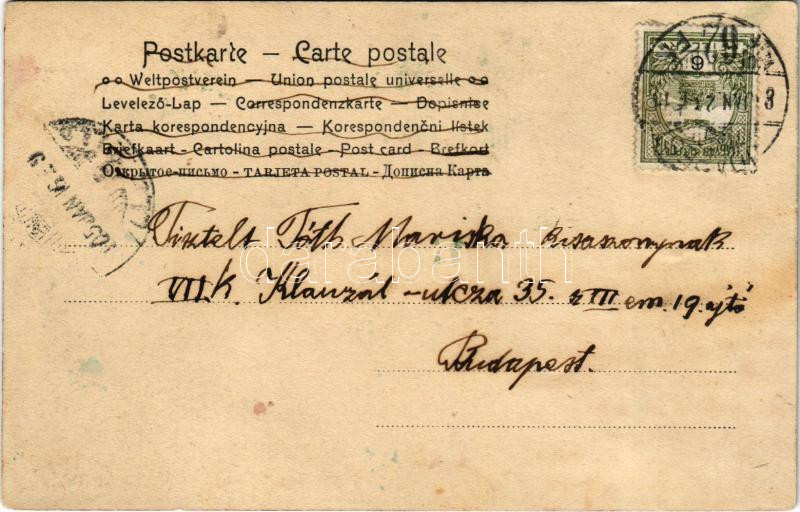 Postkarte – Carte postale
Weltpostverein – Union postale universelle
Levelező-Lap – Correspondenzkarte – Dopisnise
Karta korespondencyjna – Korespondenční lístek
Briefkaart - Cartolina postale - Post card - Brefkort
Открытое-письмо - TARJETA POSTAL - Дописна Карта
Tisztelt Tóth Mariska kisaszonynak
VII.k. Klauzál-utcza 35. sz III em. 19. ajtó
Budapest.
darabanth